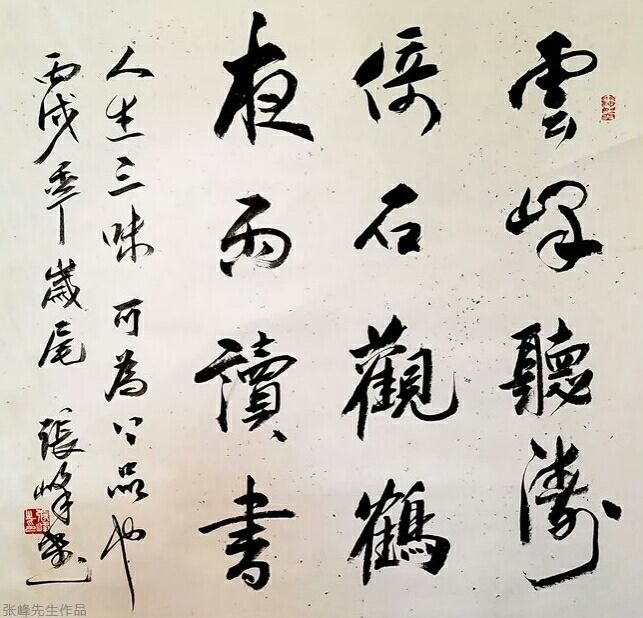 雲峰聽濤
倚石觀鶴
夜雨讀書
人生三味可為上品也
丙戌年歲尾張峰書
张峰先生作品